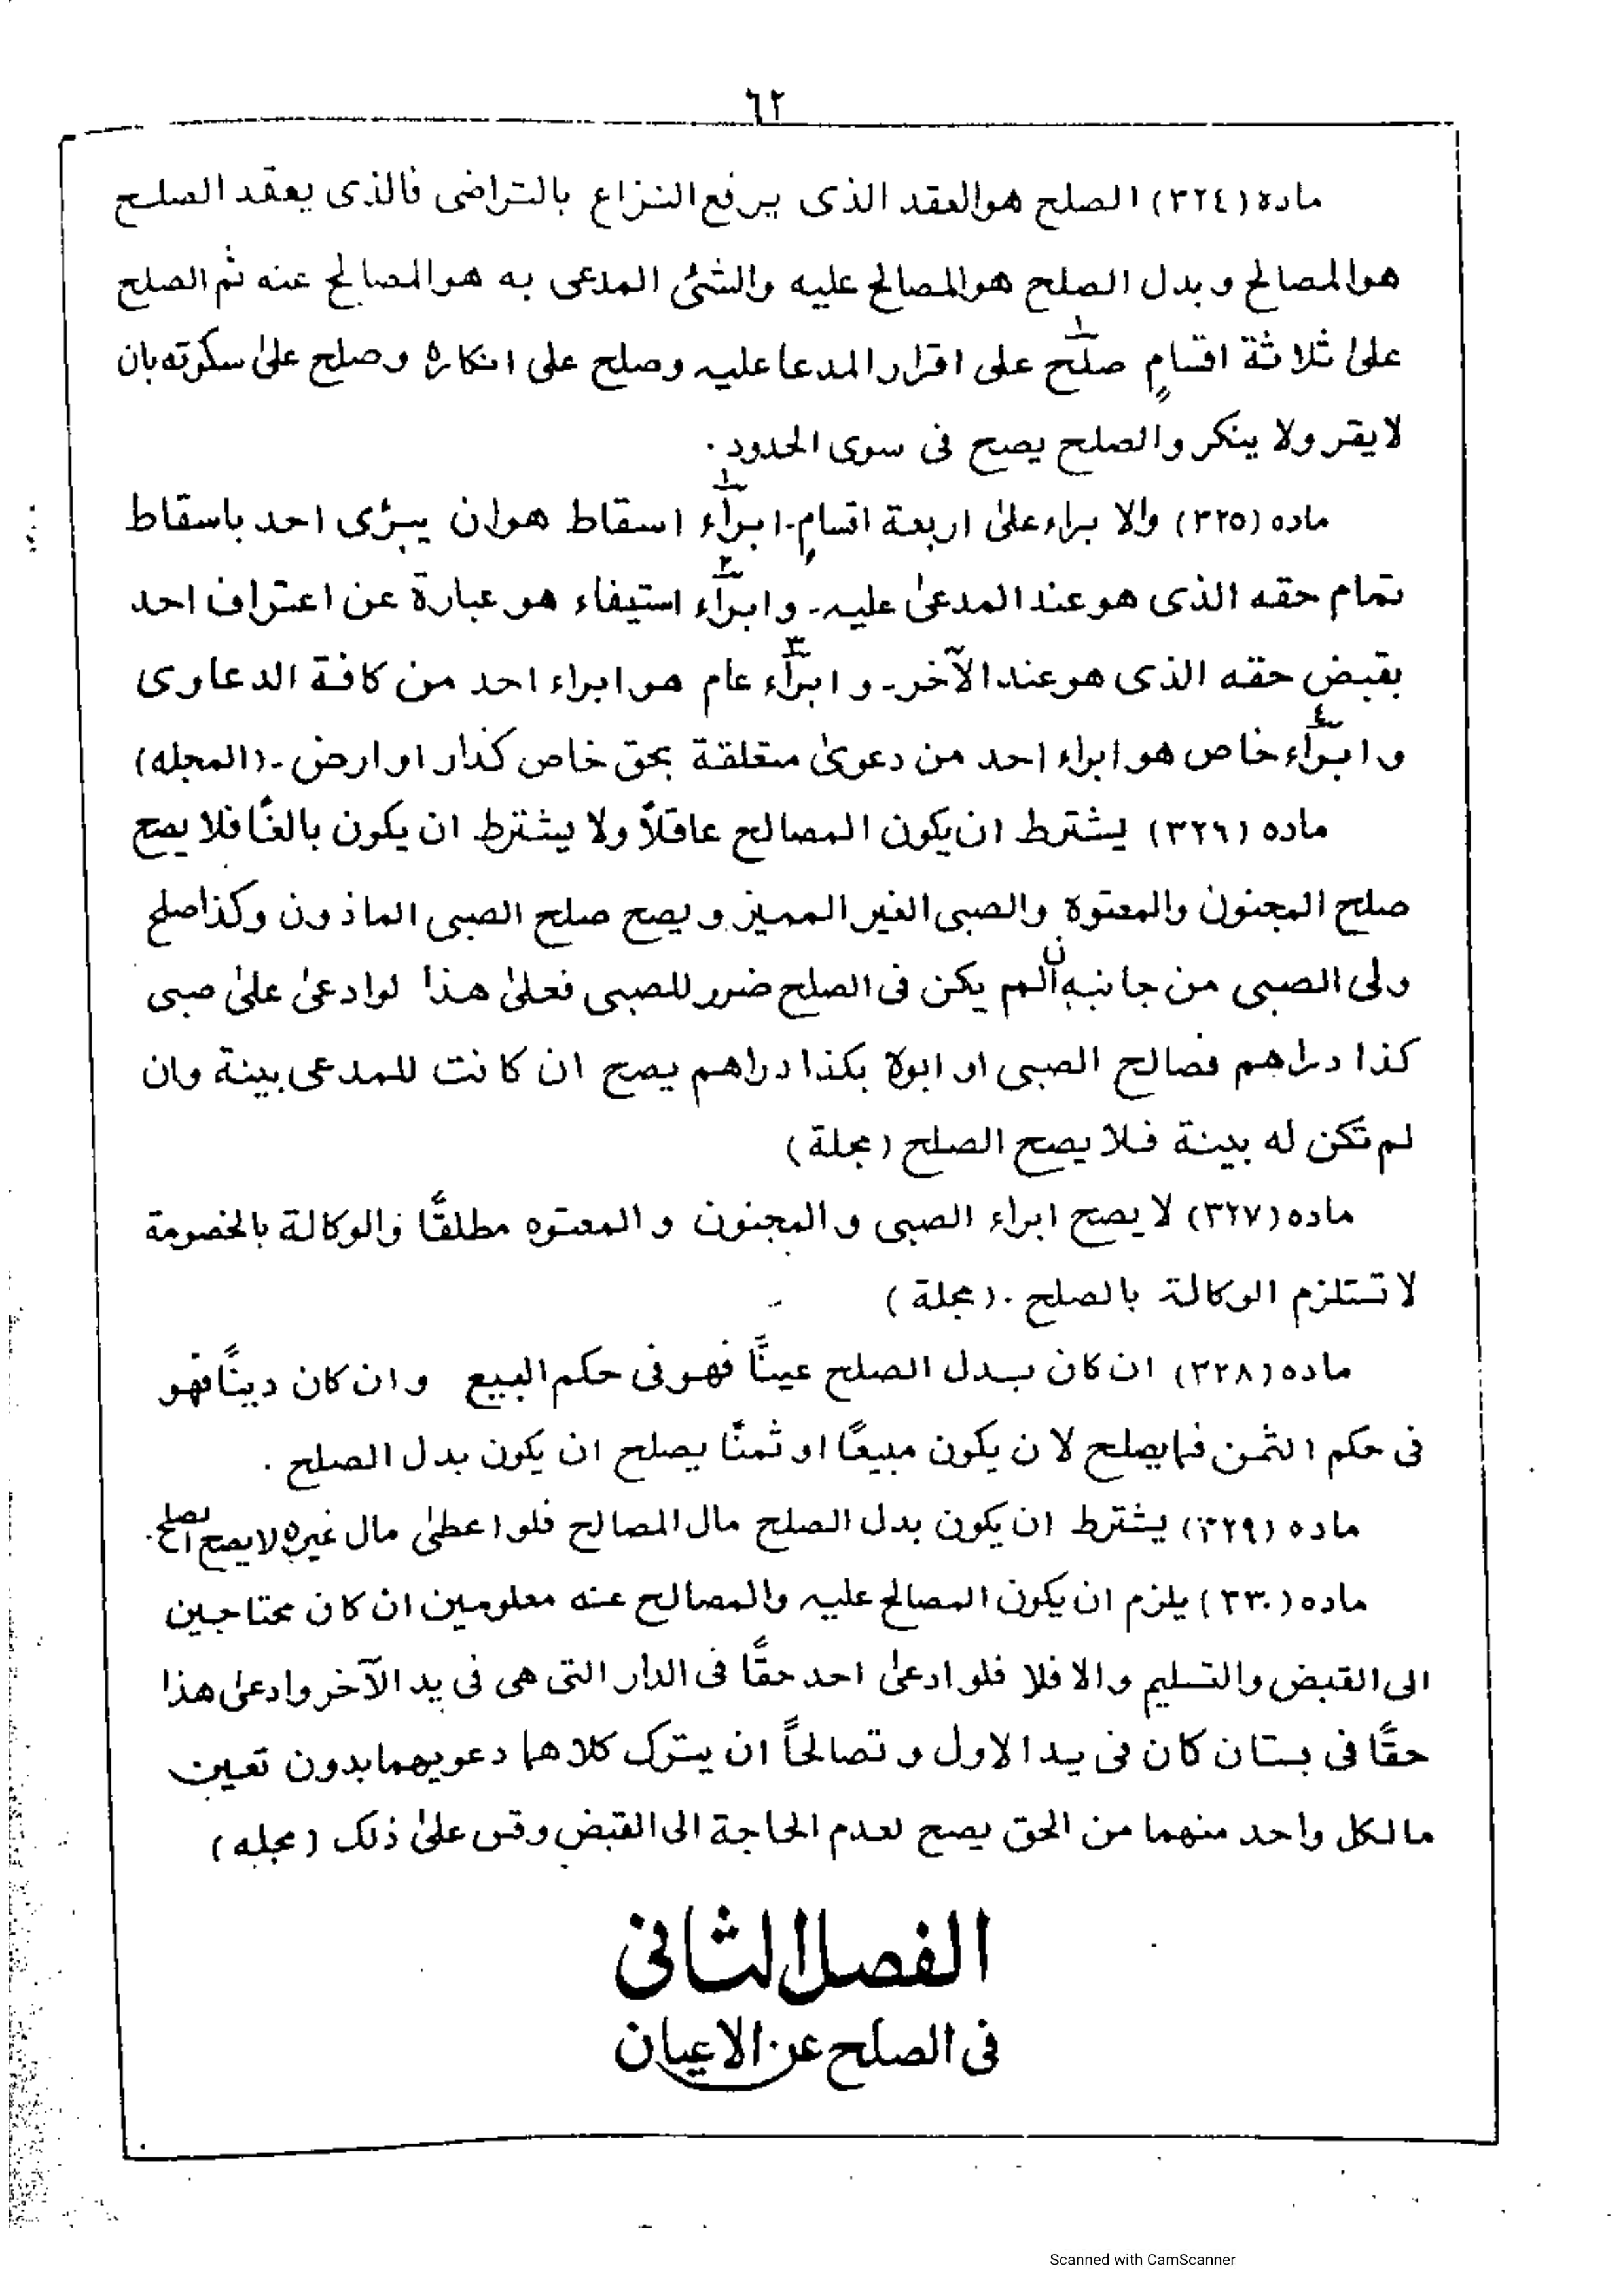 ٦٢
ماده (٣٢٤) الصلح هو العقد الذى يرفع النزاع بالتراضى فالذى يعقد الصلح
هو المصالح و بدل الصلح هو المصالح عليه والشئ المدعى به هو المصالح عنه ثم الصلح
علىٰ ثلاثة اقسامٍ صلح١ على اقرار المدعا عليه وصلح على انكاره وصلح علىٰ سكوته بان
لا يقر ولا ينكر والصلح يصح فى سوى الحدود.
ماده (٣٢٥) والا براء علىٰ اربعة اقسامٍ۔ ابرآء١ اسقاط هو ان يبرّى احد باسقاط
تمام حقه الذى هو عند المدعىٰ عليه۔ و ابرآء٢ استيفاء هو عبارة عن اعتراف احد
بقبض حقه الذى هو عند الآخر۔ و ابرآء٣ عام هو ابراء احد من كافة الدعاوى
و ابرّاء٤ خاص هو ابراء احد من دعوىٰ متعلقة بحق خاص كدار او ارض۔ (المجله)
ماده (٣٢٦) يشترط ان يكون المصالح عاقلاً ولا يشترط ان يكون بالغًا فلا يصح
صلح المجنون والمعتوه والصبى الغير المميز و يصح صلح الصبى الماذون وكذا صلح
ولى الصبى من جانبه ان لم يكن فى الصلح ضرر للصبى فعلىٰ هذا لوادعىٰ علىٰ صبى
كذا دراهم فصالح الصبى او ابوه بكذا دراهم يصح ان كانت للمدعى بينة وان
لم تكن له بينة فلا يصح الصلح (مجلة)
ماده (٣٢٧) لا يصح ابراء الصبى و المجنون و المعتوه مطلقًا والوكالة بالخصومة
لا تستلزم الوكالة بالصلح. (مجلة)
ماده (٣٢٨) ان كان بدل الصلح عينًا فهو فى حكم البيع و ان كان دينًا فهو
فى حكم الثمن فما يصلح لان يكون مبيعًا او ثمنًا يصلح ان يكون بدل الصلح.
ماده (٣٢٩) يشترط ان يكون بدل الصلح مال المصالح فلو اعطىٰ مال غيره لا يصح الصلح.
ماده (٣٣٠) يلزم ان يكون المصالح عليه والمصالح عنه معلومين ان كان محتاجين
الى القبض والتسليم والا فلا فلو ادعىٰ احد حقًا فى الدار التى هى فى يد الآخر وادعىٰ هذا
حقًا فى بستان كان فى يد الاول و تصالحاً ان يترك كلاهما دعويهما بدون تعين
ما لكل واحد منهما من الحق يصح لعدم الحاجة الى القبض وقس علىٰ ذلك (مجله)
الفصل الثانى
فى الصلح عن الاعيان
Scanned with CamScanner